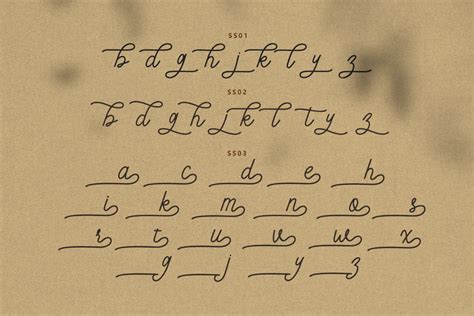 SS01
b d g h j k l y z
SS02
b d g h j k l t y z
SS03
a c d e h
i k m n o s
r t u v w x
g j y z